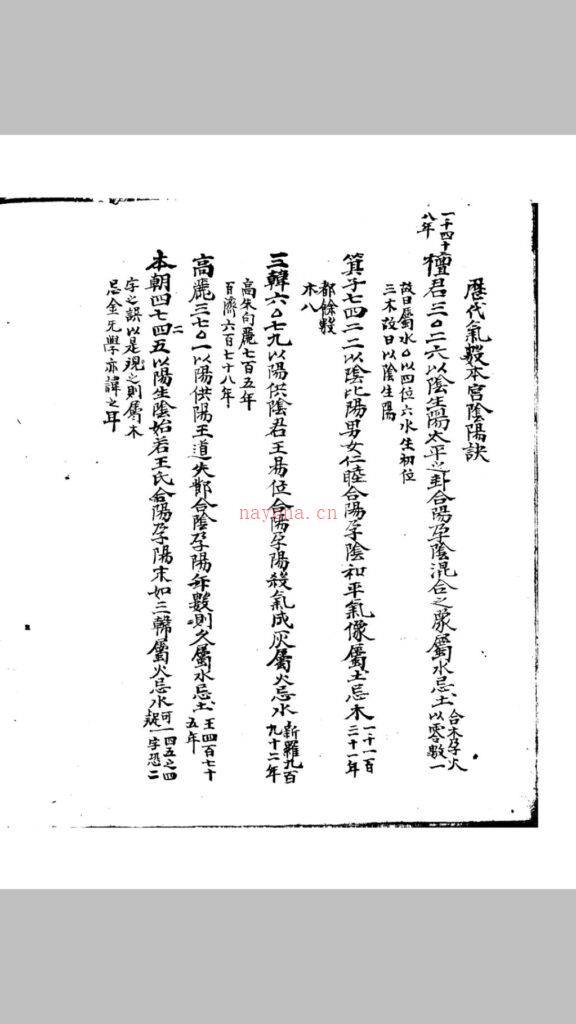 歷代氣數本宮陰陽訣
一千四十八年
檀君三〇二六以陰生陽太平之卦合陽孕陰混合之象屬水忌土
合木孕火以零數一
故曰屬水〇以四位六水生初位
三木故曰以陰生陽
箕子七四二二以陰比陽男女仁睦合陽孕陰和平氣像屬土忌木
一千一百二十一年
都餘數
木八
三韓六〇七九以陽供陰君王易位合陽孕陽殺氣成灰屬火忌水
新羅九百九十二年
高朱句麗七百五年
百濟六百七十八年
高麗三七〇一以陽供陽王道失都合陰孕陽年數則久屬水忌土
王四百七十五年
本朝四七四五以陽生陰始若王氏合陽孕陽末如三韓屬火忌水
二
可一四五之四
疑一字恐二
字之誤以是觀之則屬木
忌金元學亦諱之耳
nayona.cn